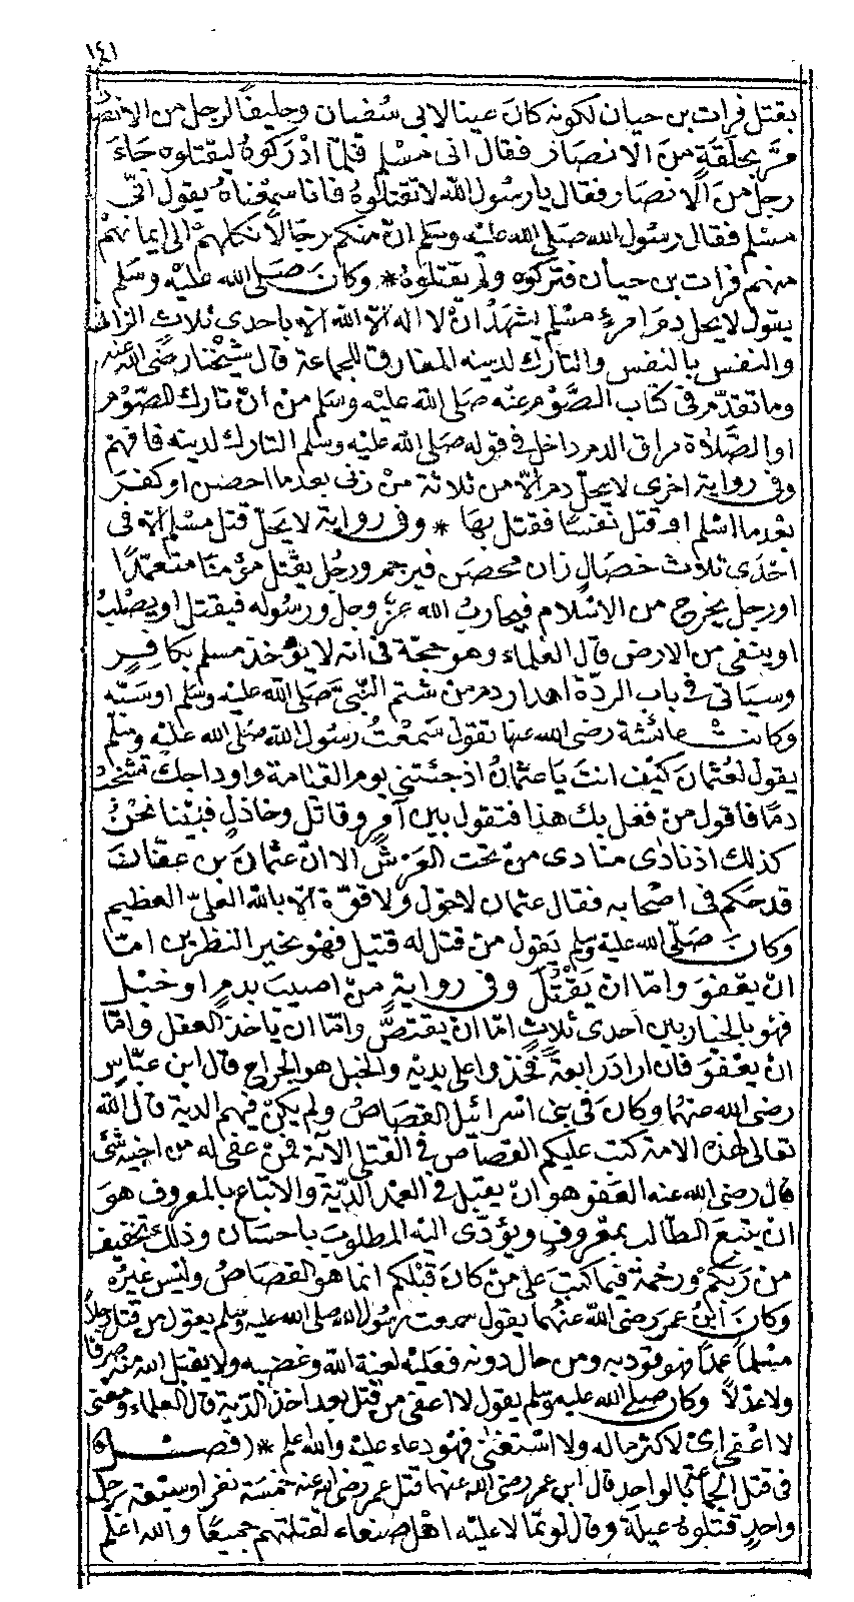 ١٤١
بقتل فرات بن حيان لكونه كان عينا لابي سفيان وحليفًا لرجل من الانصار
فمرَّ بحلقةٍ من الانصار فقال اني مسلم فلمّا ادركوهُ ليقتلوه جاءَ
رجل من الانصار فقال يا رسُول الله لا تقتلوهُ فانا سمعناهُ يقول انّي
مسْلم فقال رسُول الله صَلى الله عليْه وسَلم انّ منكم رجَالاً نكلهمْ الى ايمانهمْ
منهم فرات بن حيان فتركوه ولم يقتلوهُ * وكانَ صَلى الله عليْه وسَلم
يقول لا يحل دمَ امرئٍ مسْلم يشهدُ انّ لا اله الّا الله الّا باحدى ثلاثٍ الزاني
والنفس بالنفس والتارك لدينه المفارق للجماعة قال شيْخنا رضى الله عنه
وما تقدّم في كتاب الصَّوْم عنه صَلى الله عليْه وسَلم منْ أنّ تارك الصّوْم
او الصَّلاة مراق الدم داخل في قوله صَلى الله عليْه وسلم التارك لدينه فافهمْ
وفى رواية اخرى لا يحلّ دم الّا من ثلاثة منْ زنى بعدما احصن او كفرَ
بعْدما اسْلم او قتل نفسًا فقتل بهَا * وفى رواية لا يحلّ قتل مسْلم الّا فى
احْدَى ثلاث خصَالٍ زان محصَن فيرجم ورجُل يقتل مؤمنًا متعمّدًا
او رجل يخرج من الاسْلام فيحاربُ الله عزّ وجل ورسُوله فيقتل او يصْلبُ
او ينفى من الارض قال العُلماء وهو حجّة فى انه لا يؤخذ مسلم بكافرٍ
وسيَاتى فى باب الردّة اهدار دم من شتم النّبيّ صَلى الله عليْه وسَلم او سَبّه
وكانتْ عائشة رضى الله عنها تقول سَمعْتُ رسُول الله صَلى الله عليْه وسَلّم
يقول لعُثمانَ كيْف انتَ يَا عثمانُ اذ جئتني يوم القيامة واوداجك تشخبُ
دمًا فاقول منْ فعَل بك هذا فتقول بين آمرٍ وقاتل وخاذلٍ فبيْنا نحْنُ
كذلك اذ نادى منادى منْ تحت العَرْش الا انّ عثمانَ بن عفّانَ
قد حكّم فى اصْحابه فقال عثمان لا حوْل ولا قوّة الّا بالله العَليّ العظيم
وكانَ صَلّى الله عليْه وسَلم يَقول منْ قتل له قتيل فهْوَ بخير النظرين امّا
انْ يعْفوَ وامّا انْ يَقْتُلَ وفى روايةٍ منْ اصيبَ بدمٍ او خبْل
فهْو بالخيار بين احدى ثلاثٍ امّا انْ يقتصَّ وامّا ان يأخذ العقل وامّا
انْ يعْفوَ فان ارادَ رابعةً فخذوا على يديْه والخبل هو الجراح قال ابن عبّاسٍ
رضى الله عنهُما وكانَ فى بنى اسْرائيل القصَاصُ ولم يكنْ فيهم الدية قال الله
تعالى لهذه الامة كتب عليْكم القصَاص فى القتلى الآية فمنْ عفى له من اخيه شئ
قال رضى الله عنه العَفو هو انْ يقبَل فى العمْد الدّيةَ والاتباع بالمعروف هوَ
انْ يتبعَ الطّالب بمعْروفٍ ويؤدّى اليْه المطلوب باحسَان وذلك تخفيف
منْ رَبكمْ ورحْمة فيما كتبَ على منْ كانَ قبْلكم انما هو القصَاصُ وليْس غيرُه
وكانَ ابنُ عمرَ رضى الله عنْهُما يقول سمعت رسُول الله صلى الله عليه وسلم يقول من قتل رجلاً
مسْلماً عمدًا فهو قود به ومن حال دونه فعَليْه لعنة الله وغضبه ولا يقبَل الله منه صرفا
ولا عدْلاً وكان صَلى الله عليه وسَلم يقول لا اعفى من قتل بعد اخذ الدّية قال العلماء ومعنى
لا اعْفى اىْ لا كثر ماله ولا اسْتغنى فهوَ دعاء عليْه والله اعلم * (فصْل)
فى قتل الجماعة بالواحد قال ابن عمر رضى الله عنهما قتل عمر رضى الله عنه خمْسَة نفر او سبْعة برجل
واحدٍ قتلوهُ غيلَة وقال لو تمالأ عليْه اهْل صنعاء لقتلتهم جميعًا والله اعْلم